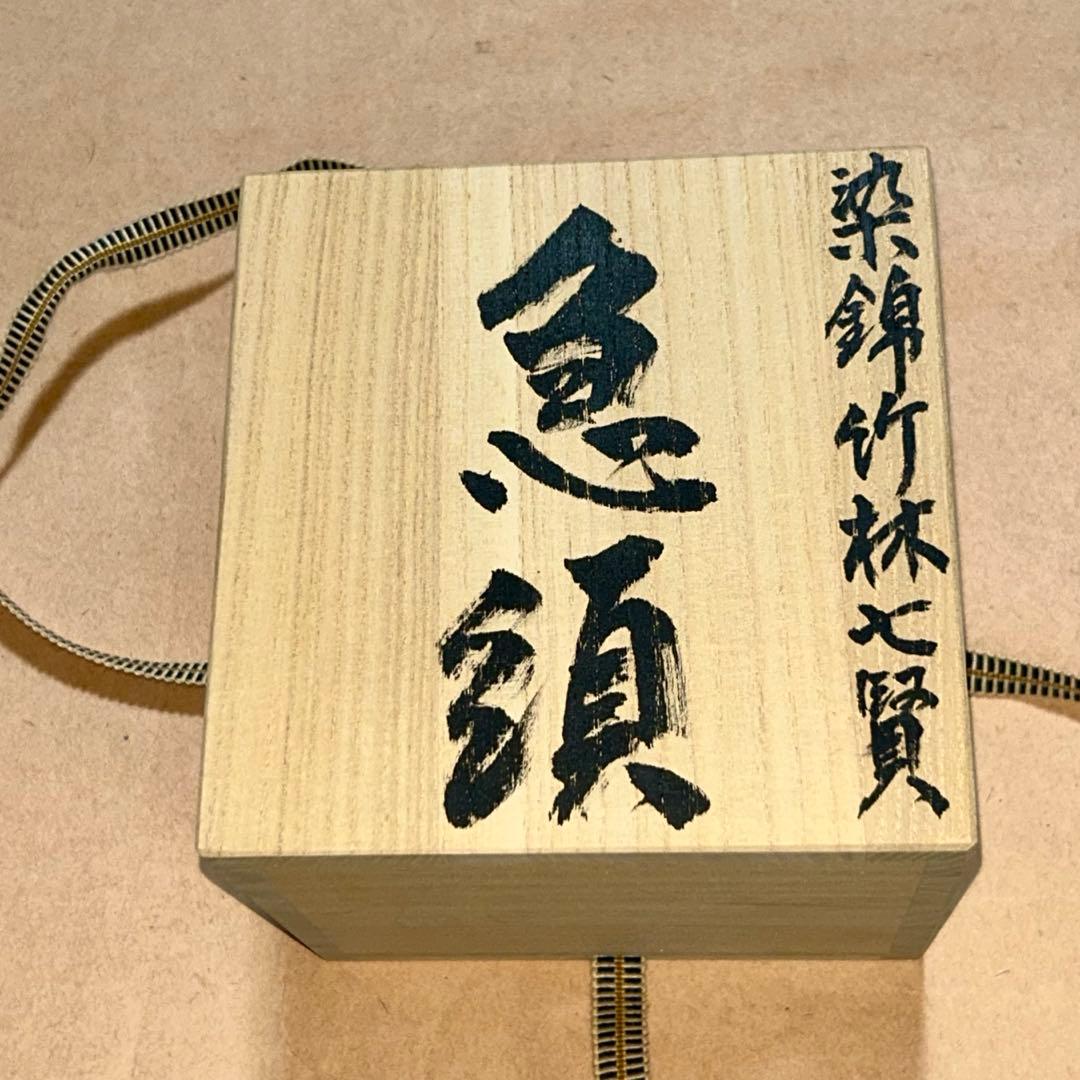 染錦竹林七賢
急須